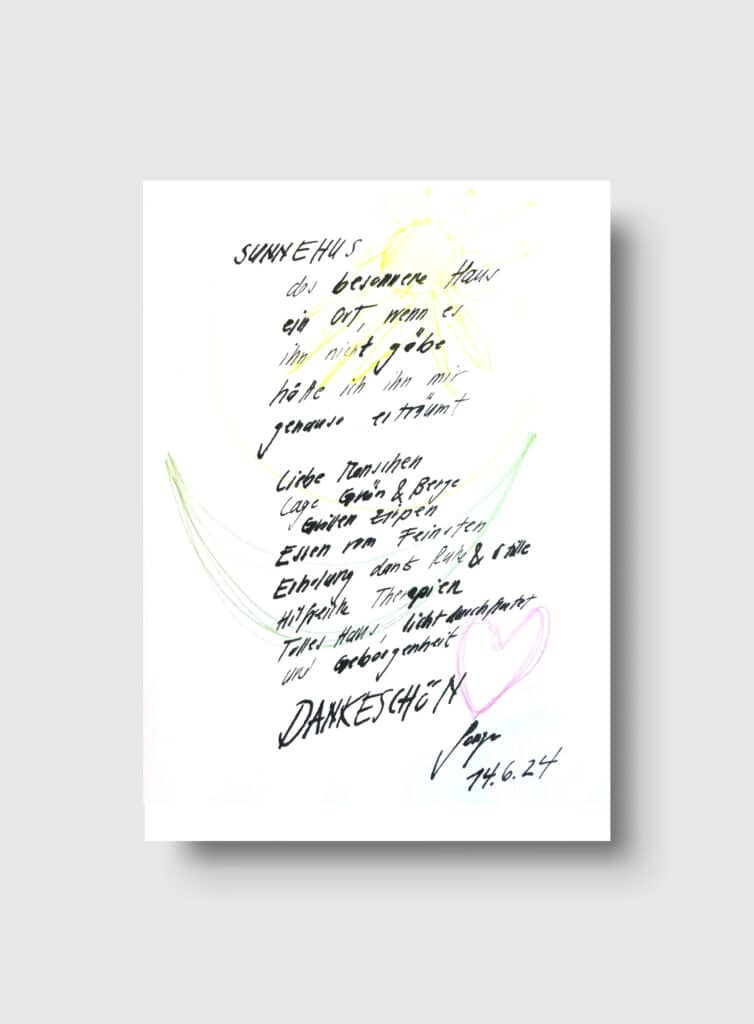 SUNNEHUS
das besonnere Haus
ein Ort, wenn es
ihn nicht gäbe
hätte ich ihn mir
genauso erträumt
Liebe Menschen
Lage Grün & Berge
Grillen zirpen
Essen vom Feinsten
Erholung dank Ruhe & Stille
Hilfreiche Therapien
Tolles Haus, lichtdurchflutet
und Geborgenheit
DANKESCHÖN
14.6.24